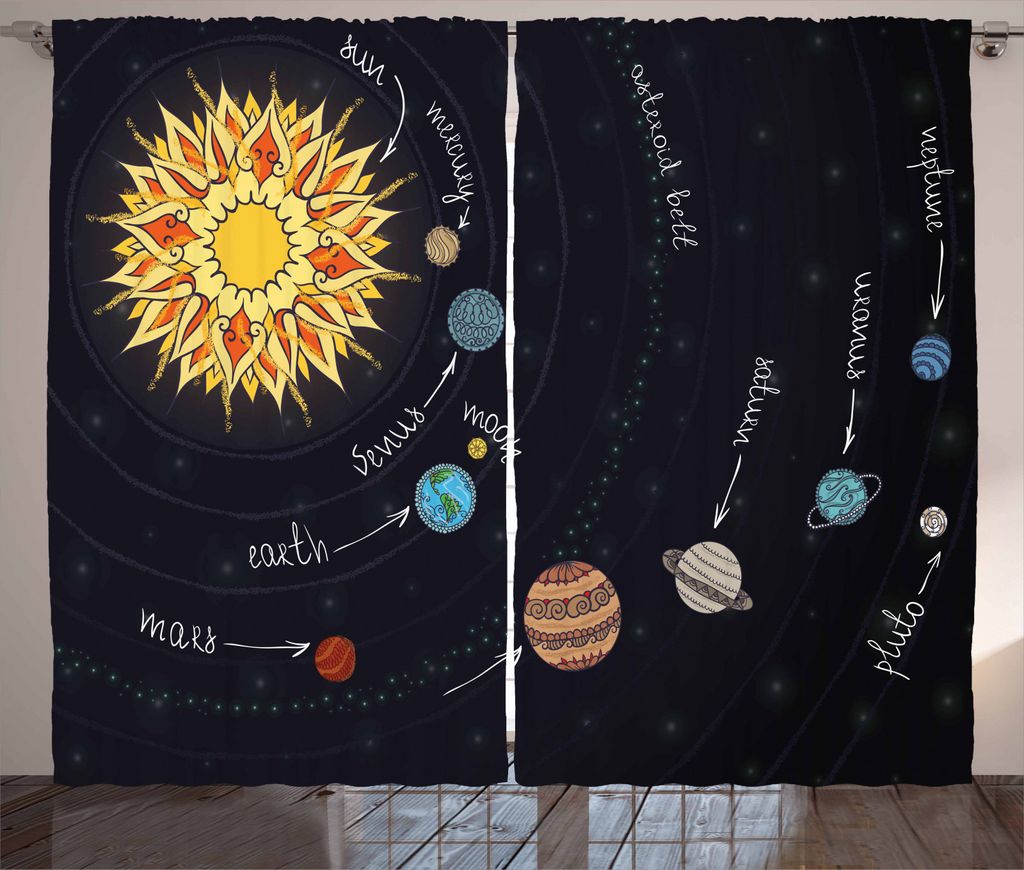 sun
mercury
asteroid belt
neptune
uranus
saturn
venus
moon
earth
mars
pluto